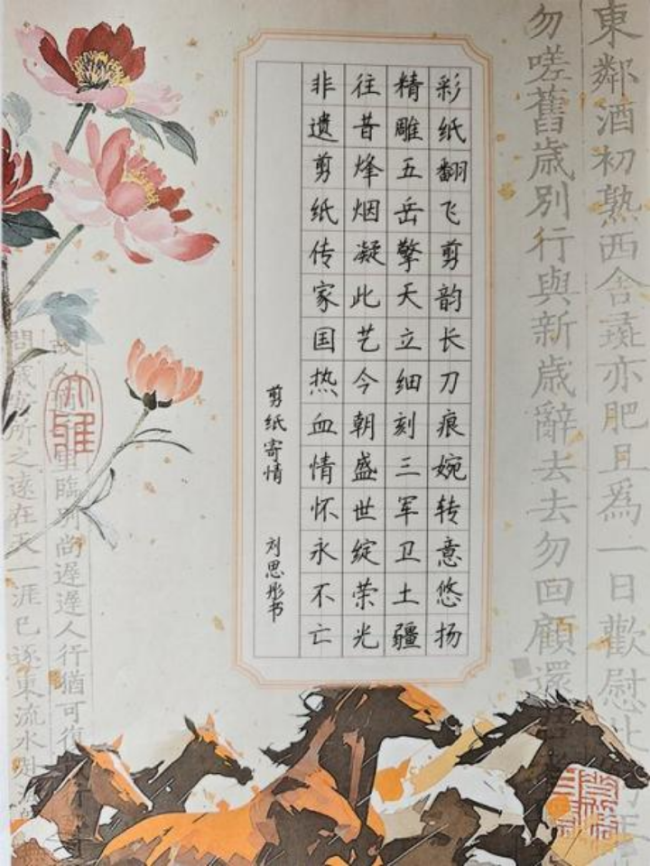 東鄰酒初熟西舍彘亦肥且爲一日歡慰此年
勿嗟舊歲別行與新歲辭去去勿回顧還
彩纸翻飞剪韵长刀痕婉转意悠扬
精雕五岳擎天立细刻三军卫土疆
往昔烽烟凝此艺今朝盛世绽荣光
非遗剪纸传家国热血情怀永不亡
剪纸寄情 刘思彤书
故人臨別尚遲遲人行猶可復
歲安所之遠在天一涯已逐東流水